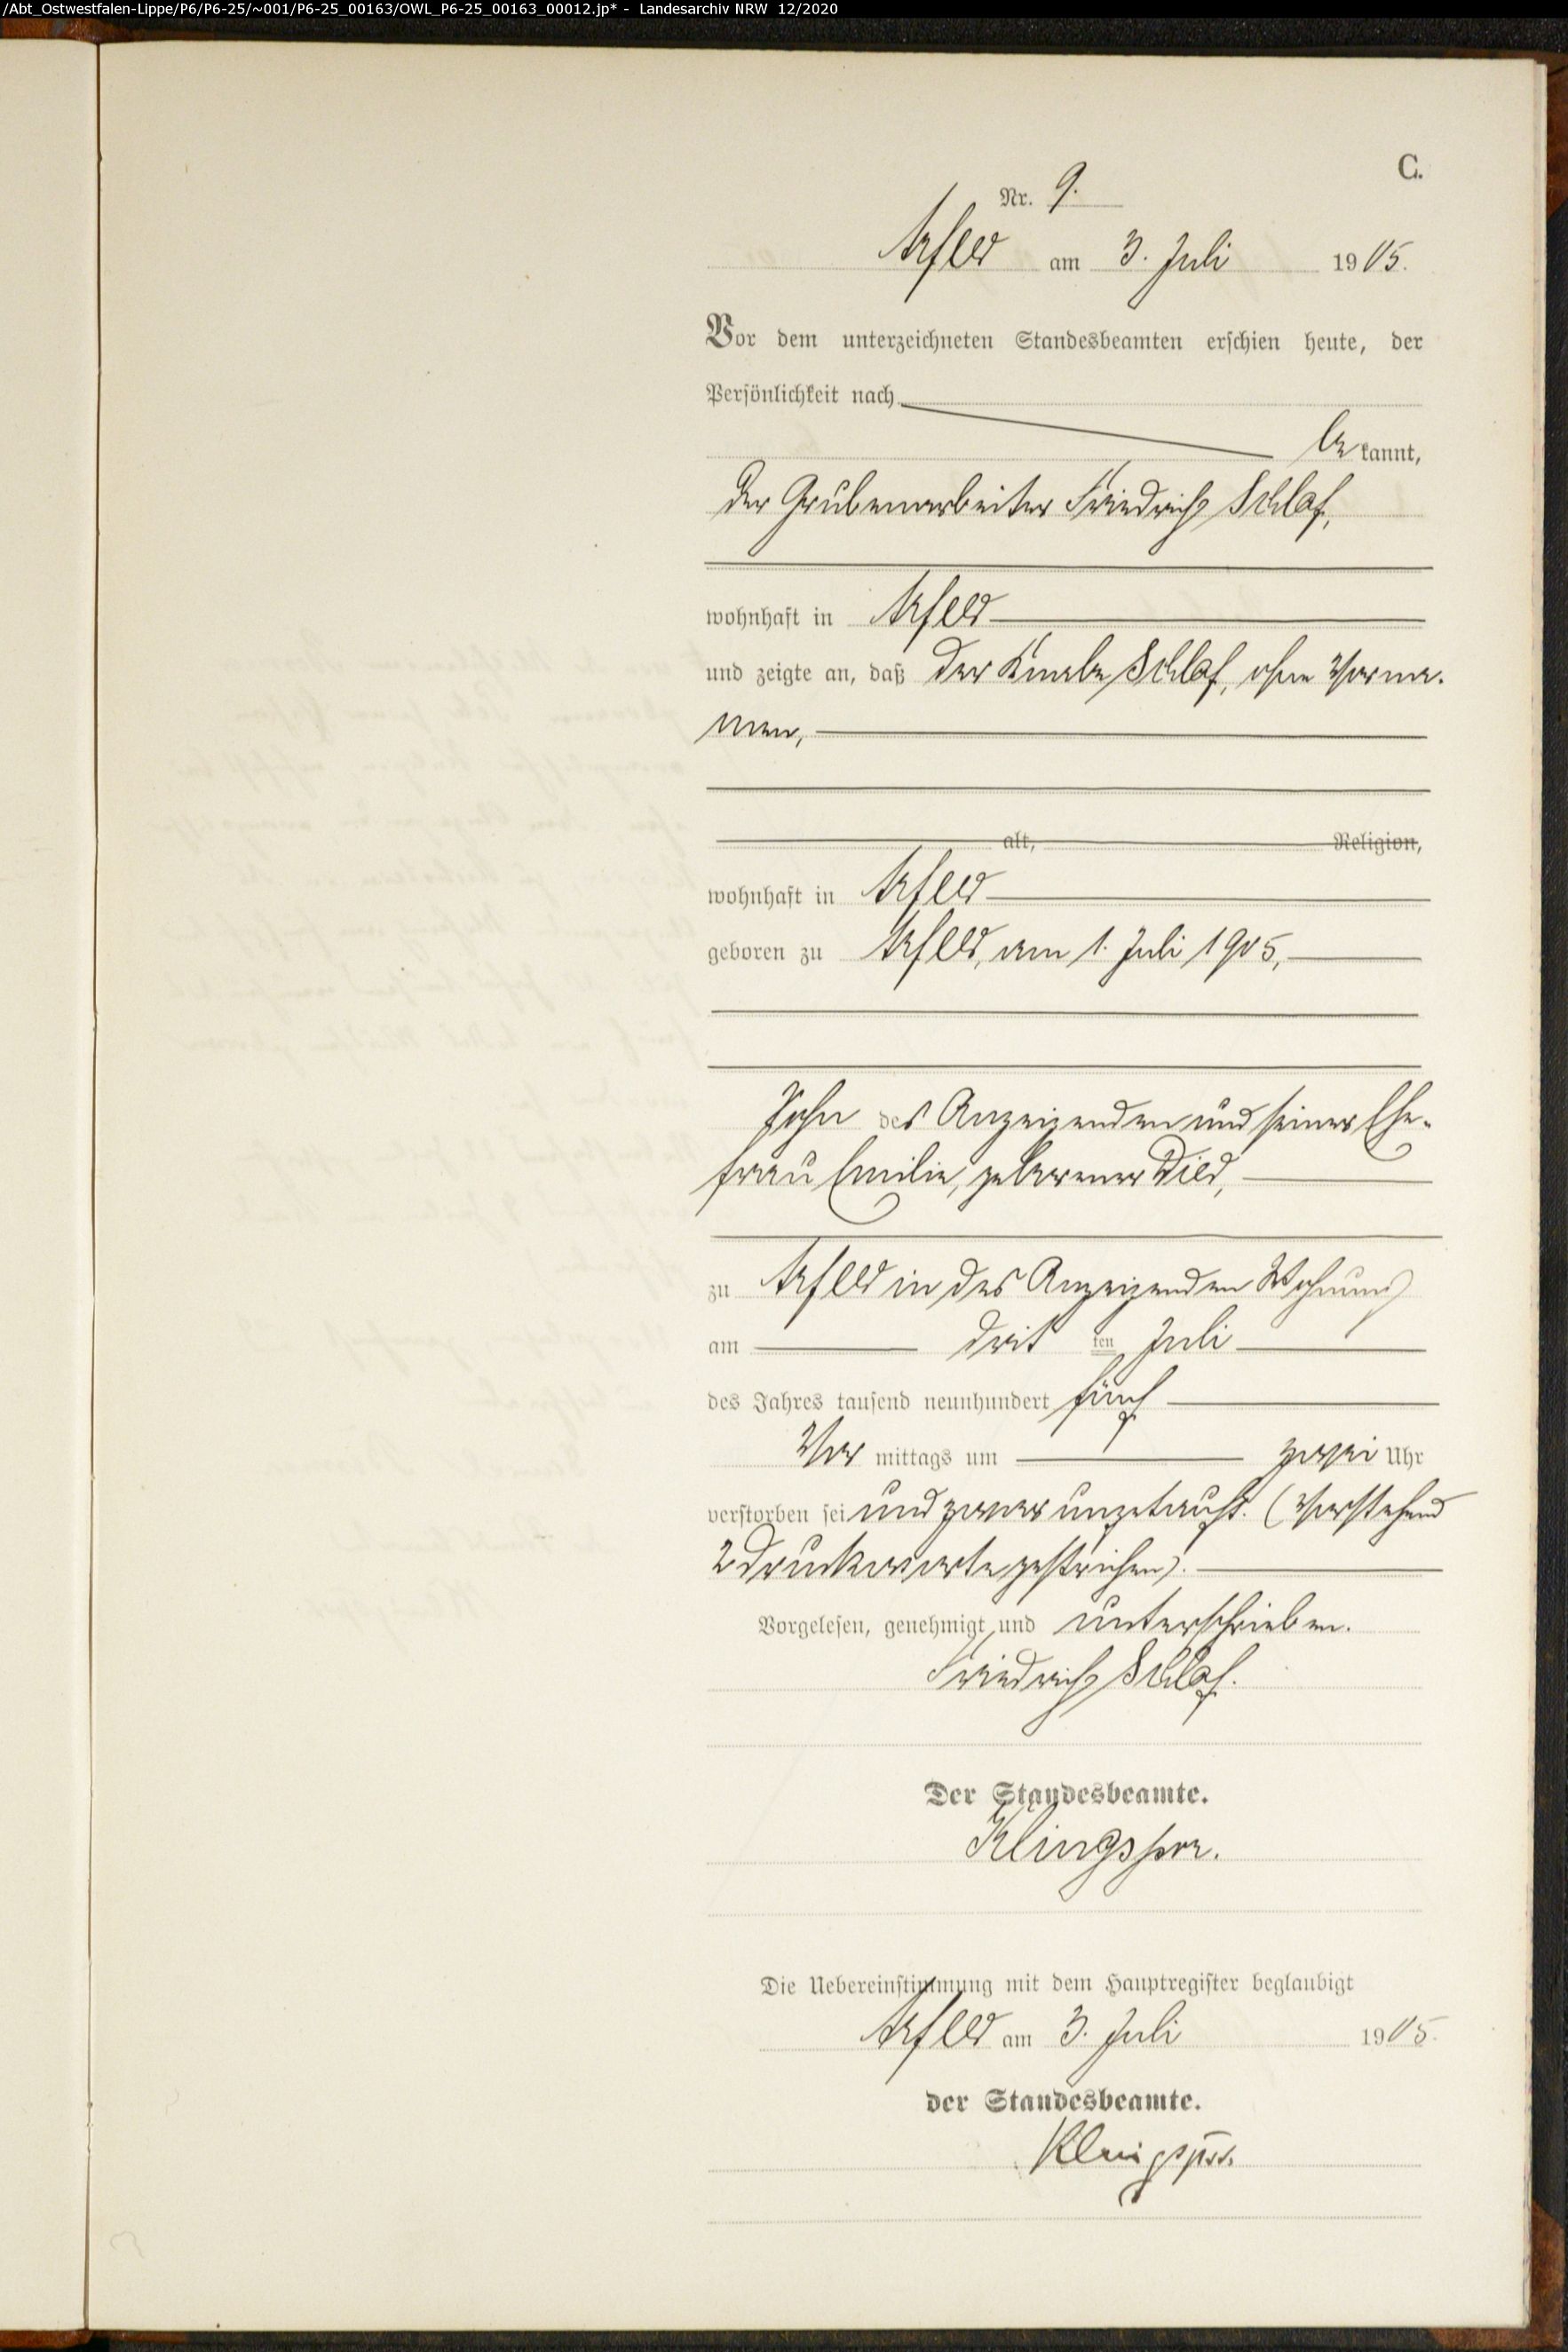 /Abt_Ostwestfalen-Lippe/P6/P6-25/~001/P6-25_00163/OWL_P6-25_00163_00012.jp* - Landesarchiv NRW 12/2020
C.
Nr. 9.
Arfeld am 3. Juli 1905.
Vor dem unterzeichneten Standesbeamten erschien heute, der
Persönlichkeit nach
bekannt,
der Grubenarbeiter Friedrich Schlaf,
wohnhaft in Arfeld
und zeigte an, daß der Knabe Schlaf, ohne Vorna-
men,
alt, Religion,
wohnhaft in Arfeld
geboren zu Arfeld, am 1. Juli 1905,
Sohn des Anzeigenden und seiner Ehe-
frau Emilie, geborener Dild,
zu Arfeld in des Anzeigenden Wohnung
am dritten Juli
des Jahres tausend neunhundert fünf
Vormittags um zwei Uhr
verstorben sei und zwar ungetauft. (Vorstehend
2 Druckworte gestrichen).
Vorgelesen, genehmigt und unterschrieben.
Friedrich Schlaf.
Der Standesbeamte.
Klingspor.
Die Uebereinstimmung mit dem Hauptregister beglaubigt
Arfeld am 3. Juli 1905.
der Standesbeamte.
Klingspor.